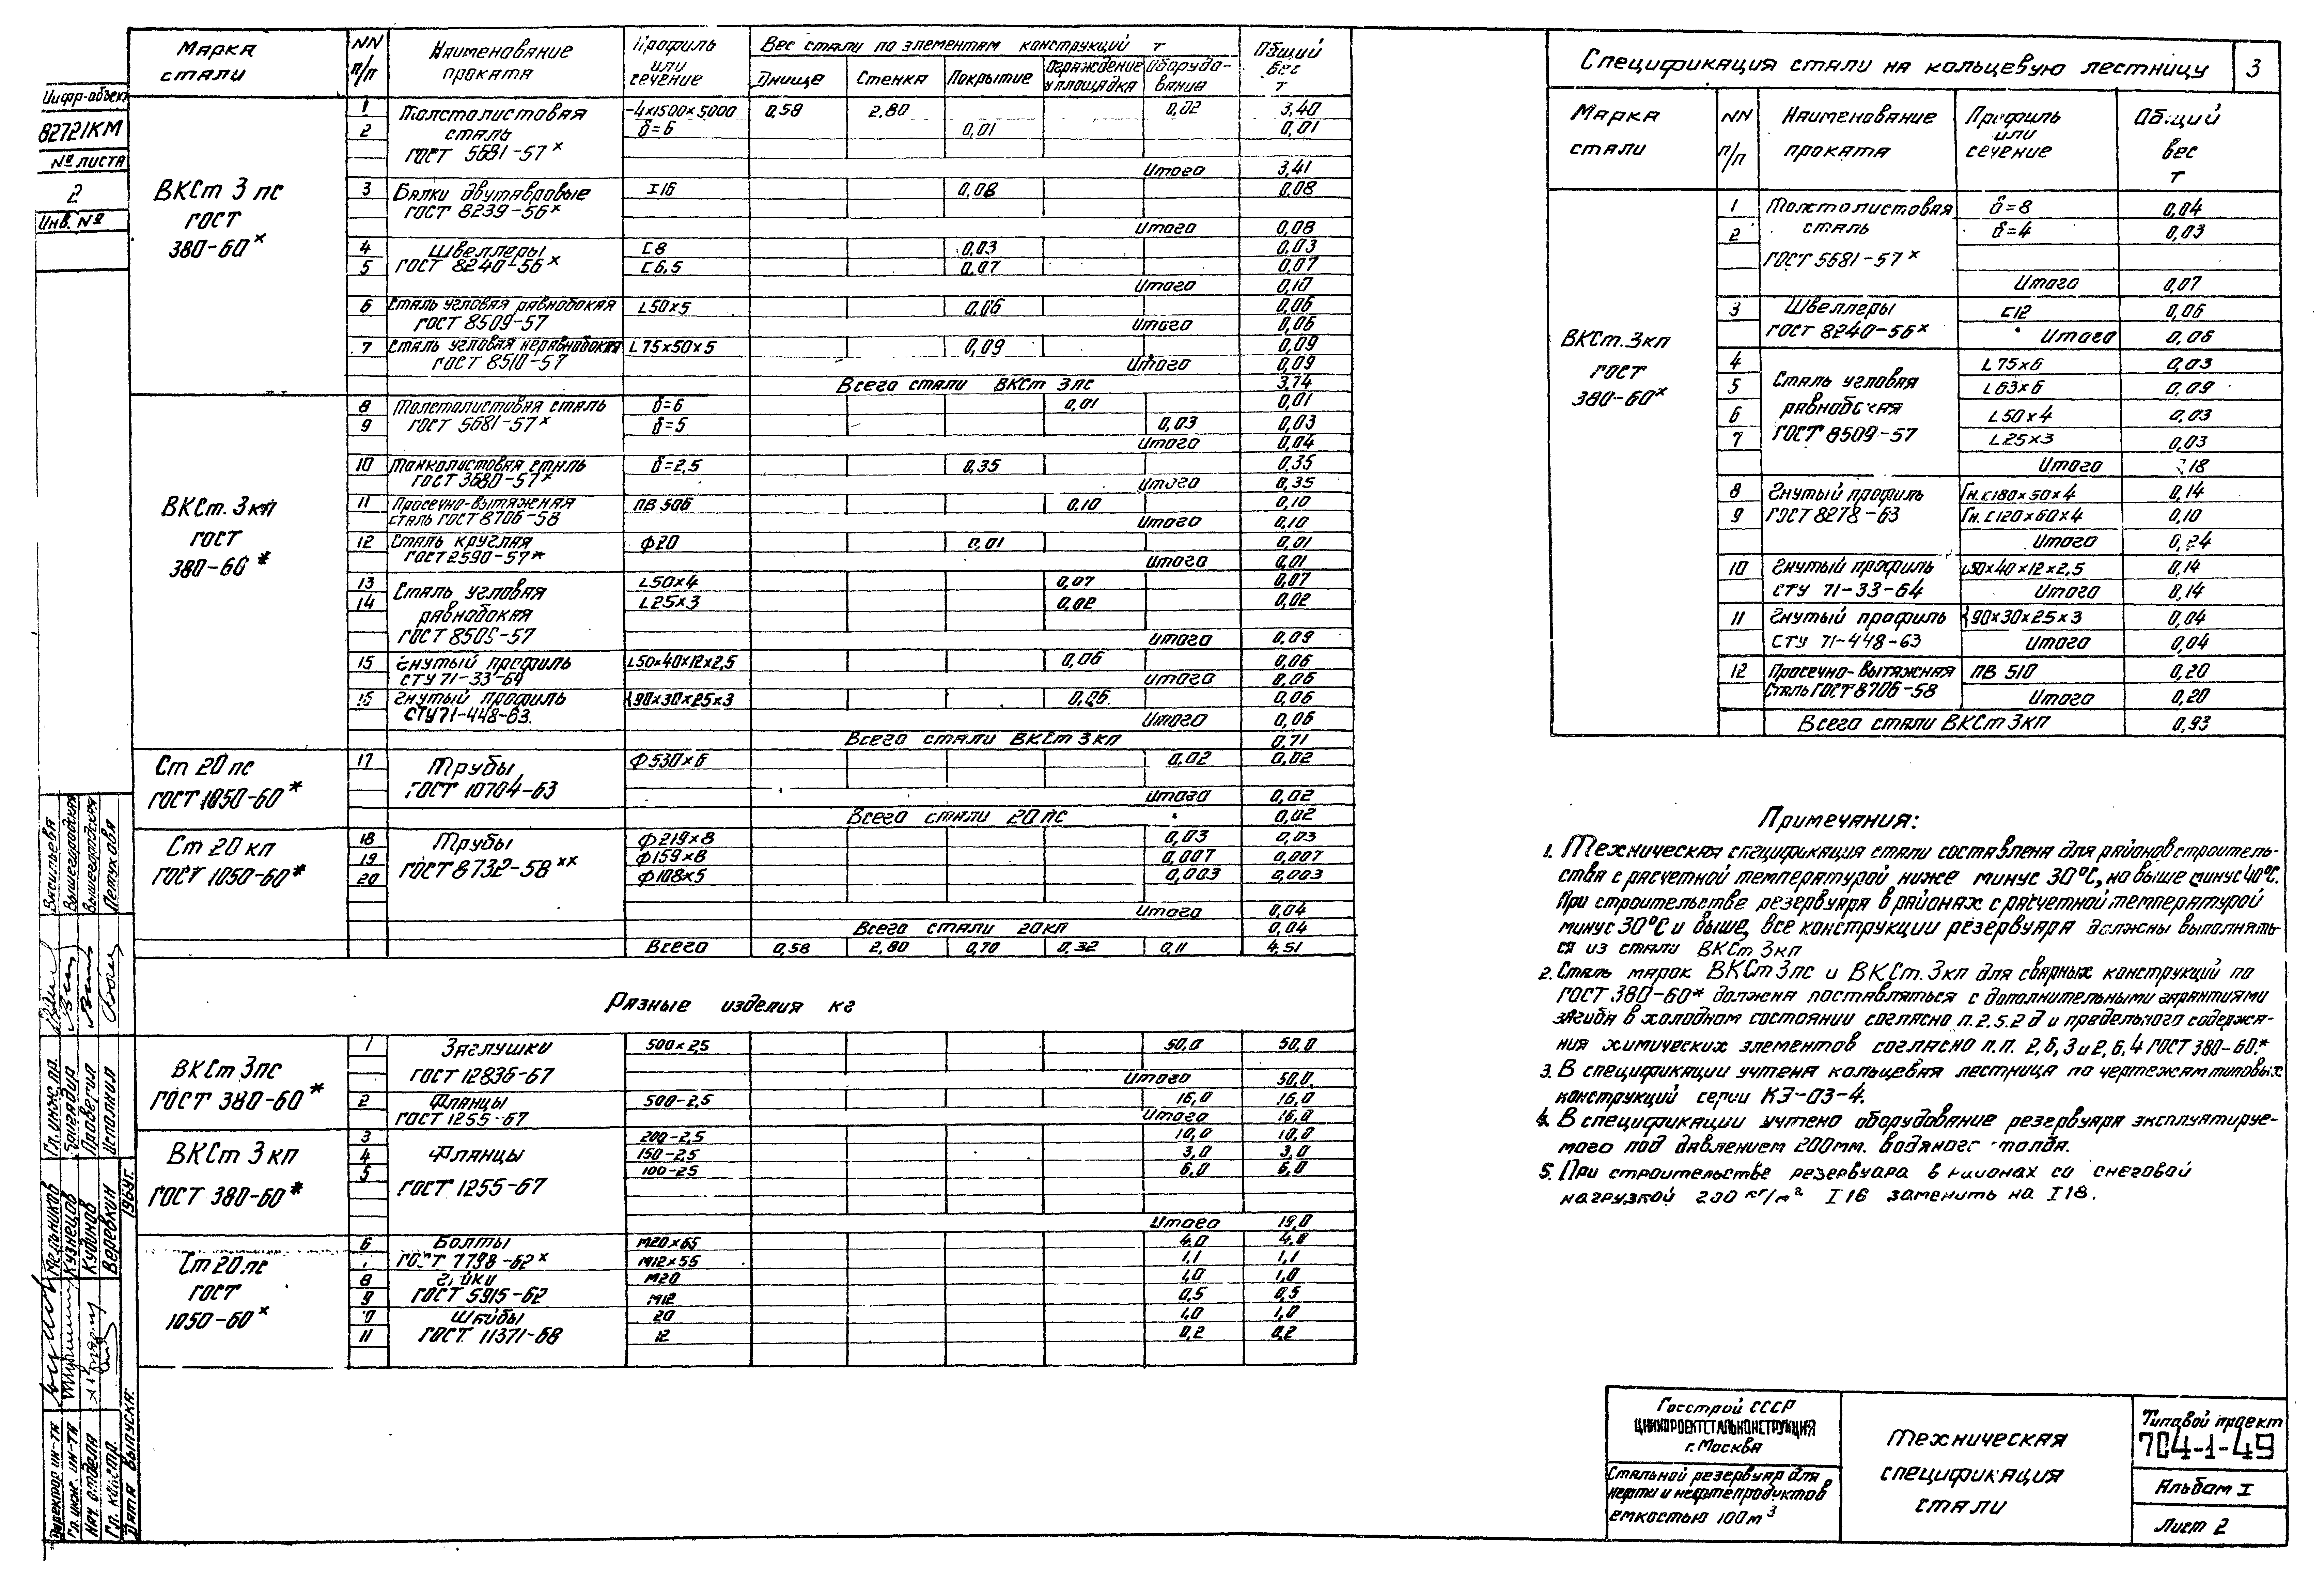 Шифр-объект
82721КМ
№ листа
2
Инв. №
Марка стали
NN п/п
Наименование проката
Профиль или сечение
Вес стали по элементам конструкций т
Днище Стенка Покрытие Ограждение и площадка Оборудование
Общий вес т
ВКСт 3 пс ГОСТ 380-60*
1 Толстолистовая сталь ГОСТ 5681-57* -4х1500х5000 0,58 2,80 0,02 3,40
2 δ=6 0,01 0,01
Итого 3,41
3 Балки двутавровые ГОСТ 8239-56* I16 0,08 0,08
Итого 0,08
4 Швеллеры ГОСТ 8240-56* С8 0,03 0,03
5 С6,5 0,07 0,07
Итого 0,10
6 Сталь угловая равнобокая ГОСТ 8509-57 L50х5 0,06 0,06
Итого 0,06
7 Сталь угловая неравнобокая ГОСТ 8510-57 L75х50х5 0,09 0,09
Итого 0,09
Всего стали ВКСт 3пс 3,74
ВКСт. 3кп ГОСТ 380-60*
8 Толстолистовая сталь ГОСТ 5681-57* δ=6 0,01 0,01
9 δ=5 0,03 0,03
Итого 0,04
10 Тонколистовая сталь ГОСТ 3680-57* δ=2,5 0,35 0,35
Итого 0,35
11 Просечно-вытяженная сталь ГОСТ 8706-58 ПВ 506 0,10 0,10
Итого 0,10
12 Сталь круглая ГОСТ 2590-57* ф20 0,01 0,01
Итого 0,01
13 Сталь угловая равнобокая ГОСТ 8509-57 L50х4 0,07 0,07
14 L25х3 0,02 0,02
Итого 0,09
15 Гнутый профиль СТУ 71-33-64 L50х40х12х2,5 0,06 0,06
Итого 0,06
16 Гнутый профиль СТУ 71-448-63. {90х30х25х3 0,06 0,06
Итого 0,06
Всего стали ВКСт 3кп 0,71
Ст 20 пс ГОСТ 1050-60*
17 Трубы ГОСТ 10704-63 ф530х6 0,02 0,02
Итого 0,02
Всего стали 20пс 0,02
Ст 20 кп ГОСТ 1050-60*
18 Трубы ГОСТ 8732-58** ф219х8 0,03 0,03
19 ф159х8 0,007 0,007
20 ф108х5 0,003 0,003
Итого 0,04
Всего стали 20кп 0,04
Всего 0,58 2,80 0,70 0,32 0,11 4,51
Разные изделия кг
ВКСт 3пс ГОСТ 380-60*
1 Заглушки ГОСТ 12836-67 500х2,5 50,0 50,0
Итого 50,0
2 Фланцы ГОСТ 1255-67 500-2,5 16,0 16,0
Итого 16,0
ВКСт 3 кп ГОСТ 380-60*
3 Фланцы ГОСТ 1255-67 200-2,5 10,0 10,0
4 150-2,5 3,0 3,0
5 100-25 6,0 6,0
Итого 19,0
Ст 20.пс ГОСТ 1050-60*
6 Болты ГОСТ 7798-62* М20х65 4,0 4,0
М12х55 1,1 1,1
8 Гайки ГОСТ 5915-62 М20 1,0 1,0
9 М12 0,5 0,5
Шайбы ГОСТ 11371-68 20 1,0 1,0
11 12 0,2 0,2
Спецификация стали на кольцевую лестницу 3
Марка стали
NN п/п
Наименование проката
Профиль или сечение
Общий вес т
ВКСт. 3кп ГОСТ 380-60*
1 Толстолистовая сталь ГОСТ 5681-57* δ=8 0,04
2 δ=4 0,03
Итого 0,07
3 Швеллеры ГОСТ 8240-56* С12 0,06
Итого 0,06
4 Сталь угловая равнобокая ГОСТ 8509-57 L75х6 0,03
5 L63х6 0,09
6 L50х4 0,03
7 L25х3 0,03
Итого 0,18
8 Гнутый профиль ГОСТ 8278-63 Гн.С180х50х4 0,14
9 Гн.С120х60х4 0,10
Итого 0,24
10 Гнутый профиль СТУ 71-33-64 L50х40х12х2,5 0,14
Итого 0,14
11 Гнутый профиль СТУ 71-448-63 {90х30х25х3 0,04
Итого 0,04
12 Просечно-вытяжная сталь ГОСТ 8706-58 ПВ 510 0,20
Итого 0,20
Всего стали ВКСт 3кп 0,93
Примечания:
1. Техническая спецификация стали составлена для районов строитель-
ства с расчетной температурой ниже минус 30°С, но выше минус 40°С.
При строительстве резервуара в районах с расчетной температурой
минус 30°С и выше, все конструкции резервуара должны выполнять-
ся из стали ВКСт 3кп
2. Сталь марок ВКСт 3пс и ВКСт. 3кп для сварных конструкций по
ГОСТ 380-60* должна поставляться с дополнительными гарантиями
загиба в холодном состоянии согласно п.2.5.2д и предельного содержа-
ния химических элементов согласно п.п. 2,6,3 и 2,6,4 ГОСТ 380-60.*
3. В спецификации учтена кольцевая лестница по чертежам типовых
конструкций серии КЭ-03-4.
4. В спецификации учтено оборудование резервуара эксплуатируе-
мого под давлением 200мм. водяного столба.
5. При строительстве резервуара в районах со снеговой
нагрузкой 200 кг/м² I16 заменить на I18.
Госстрой СССР
ЦНИИПРОЕКТСТАЛЬКОНСТРУКЦИЯ
г. Москва
Стальной резервуар для
нефти и нефтепродуктов
емкостью 100м³
Техническая
спецификация
стали
Типовой проект
704-1-49
Альбом I
Лист 2
Директор ин-та Мельников
Гл. инж. ин-та Кузнецов
Нач. отдела Кудинов
Гл. констр. Веревкин
Дата выпуска: 1969г.
Гл. инж. пр. Васильева
Бригадир Вышегородская
Проверил Вышегородская
Исполнил Петухова